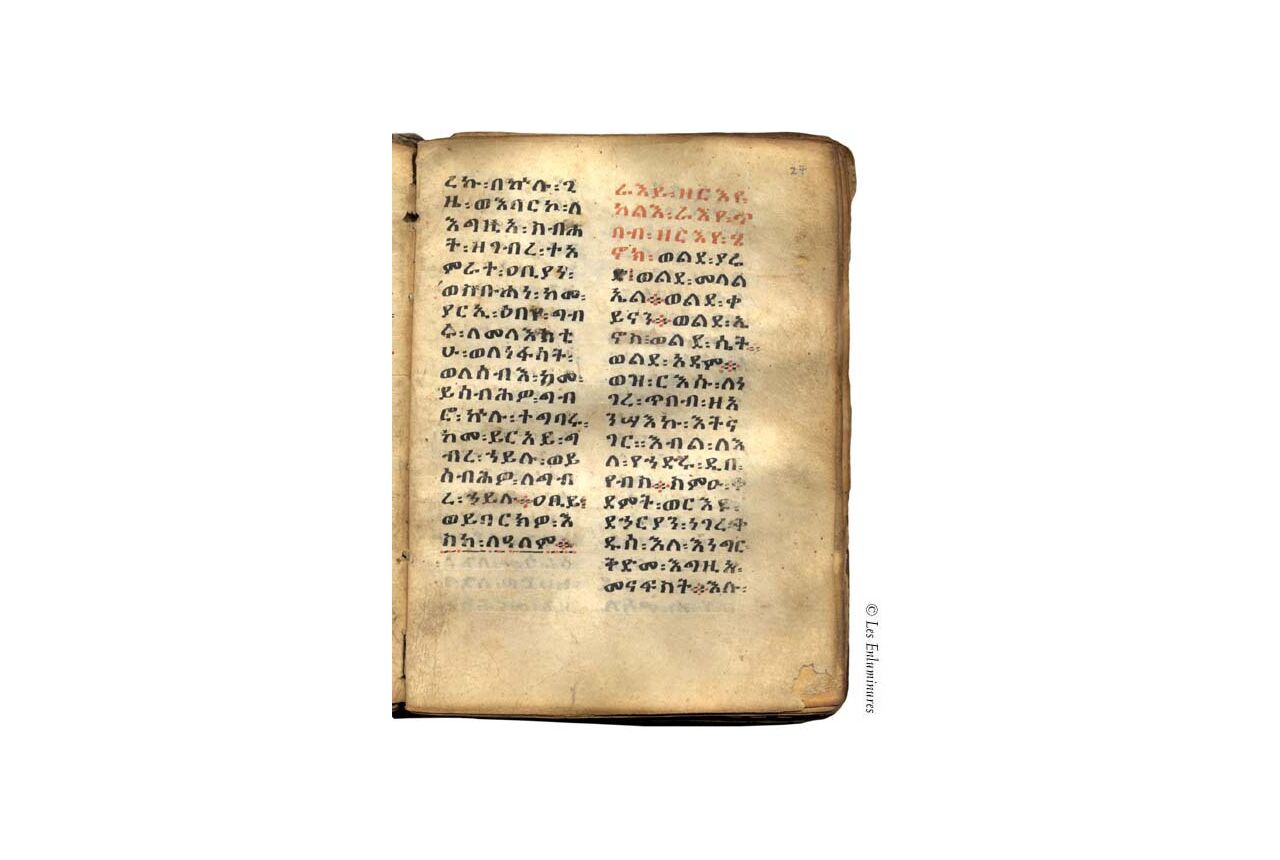 27
ረኩ፡በኵሉ፡ጊ
ዜ፡ወእባርኮ፡ለ
እግዚአ፡ስብሐ
ት፡ዘገብረ፡ተአ
ምራተ፡ዐቢያነ፡
ወስቡሐነ፡ከመ፡
ያርኢ፡ዕበየ፡ግብ
ሩ፡ለመላእክቲ
ሁ፡ወለነፋስት፡
ወለሰብእ፡ከመ፡
ይሰብሕዎ፡ግብ
ሮ፡ኵሉ፡ተግባሩ፡
ከመ፡ይርአይ፡ግ
ብረ፡ኀይሉ፡ወይ
ሰብሕዎ፡ለግብ
ረ፡ኀይሉ፡ዐቢይ፡
ወይባርክዎ፡እ
ስከ፡ለዓለም።
ራእይ፡ዘርእየ፡
ካልእ፡ራእየ፡ጥ
በብ፡ዘርእየ፡ሄ
ኖክ፡ወልደ፡ያሬ
ድ፡ወልደ፡መላል
ኤል።ወልደ፡ቀ
ይናን።ወልደ፡ኤ
ኖስ፡ወልደ፡ሴት፡
ወልደ፡አዳም።
ወዝ፡ርእሱ፡ለነ
ገረ፡ጥበብ፡ዘአ
ንሣእኩ፡እትና
ገር፡፡እብል፡ለእ
ለ፡የኀድሩ፡ዲበ፡
የብስ።ስምዑ፡ቀ
ደምት፡ወርእዩ፡
ደኃርያን፡ነገረ፡ቅ
ዱስ፡እለ፡እነግር፡
ቅድመ፡እግዚአ፡
መናፍስት።እሉ፡
© Les Enluminures